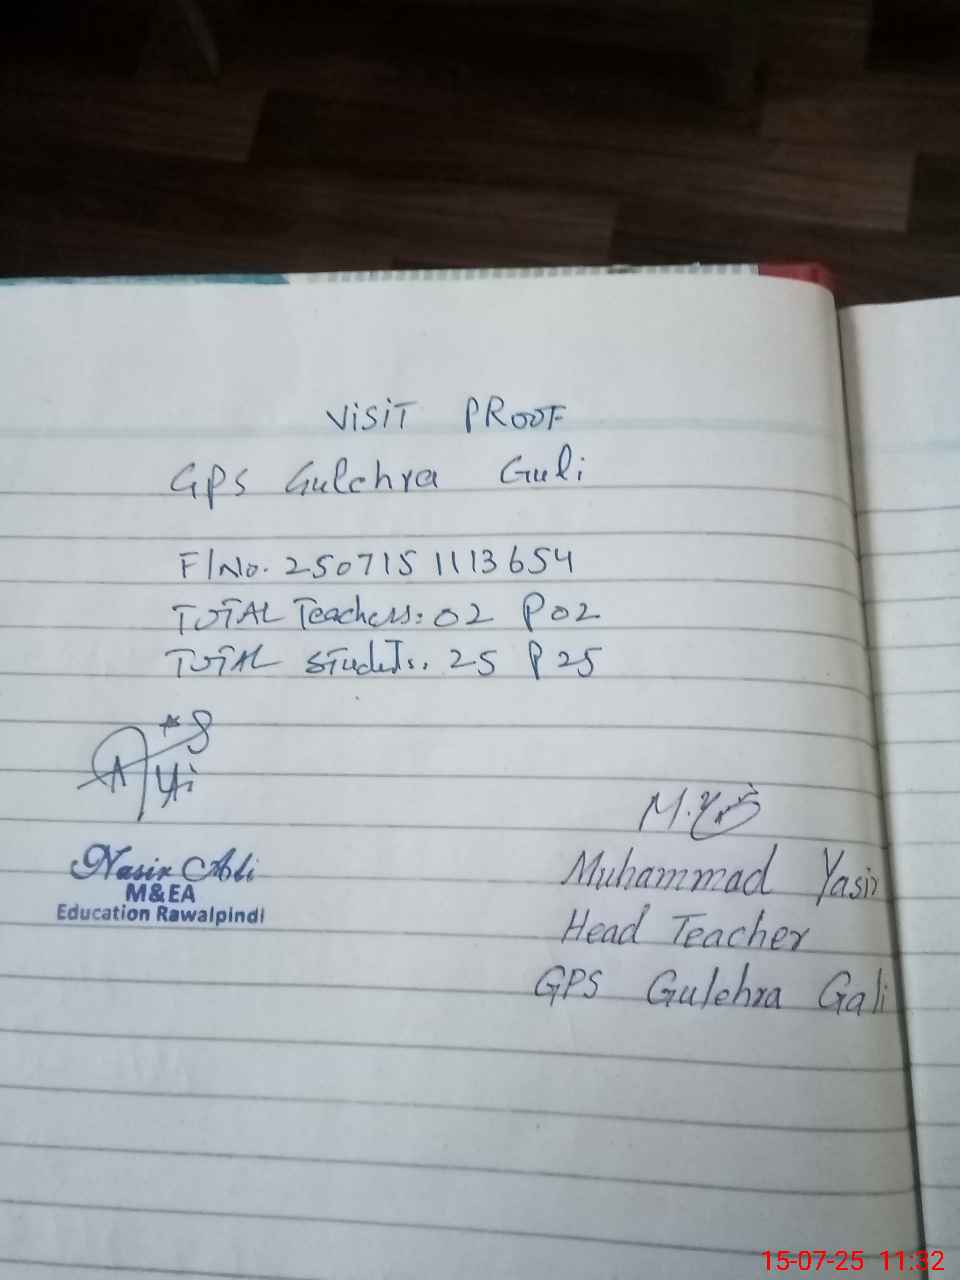 VISIT PROOF
GPS Gulehra Guli
F/No. 2507151113654
TOTAL Teachers: 02 P 02
TOTAL Students. 25 P 25
Nasir Ali
M&EA
Education Rawalpindi
Muhammad Yasir
Head Teacher
GPS Gulehra Gali
15-07-25 11:32